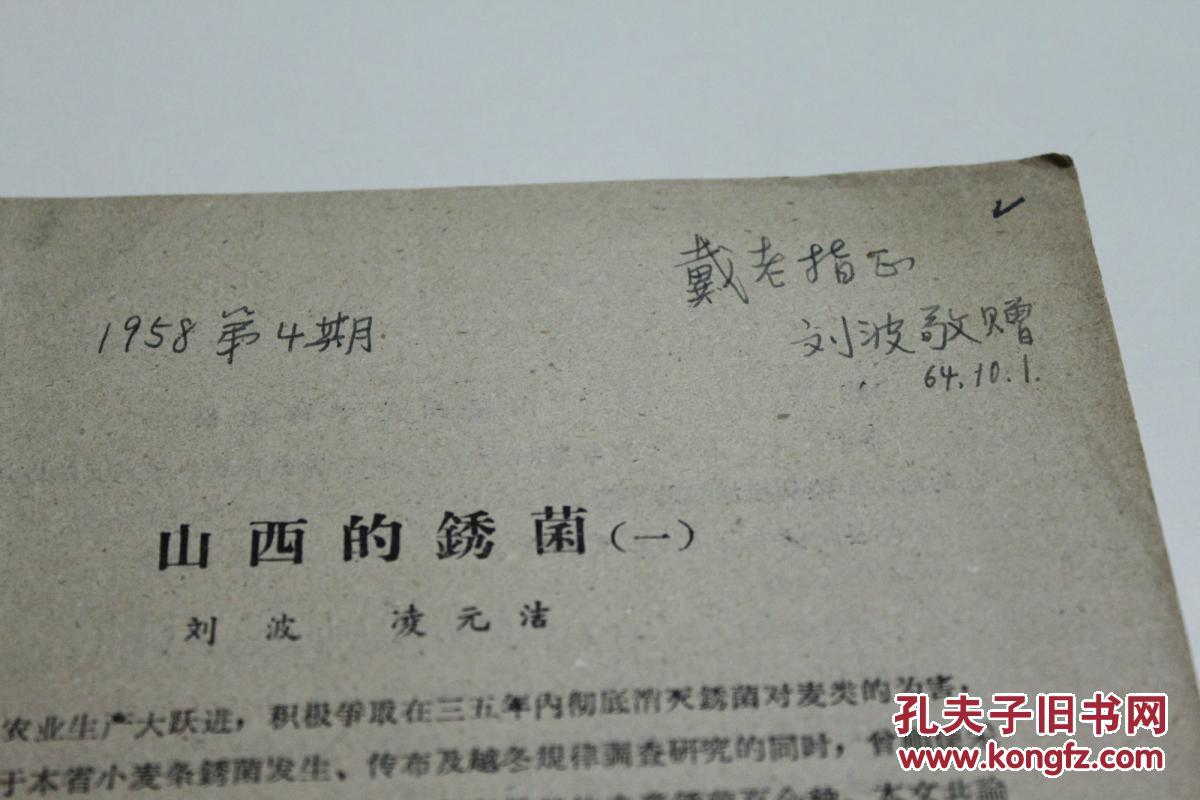 戴老指正
刘波敬赠
64.10.1.
1958 第4期
山西的銹菌(一)
刘波 凌元洁
农业生产大跃进，积极爭取在三五年内彻底消灭銹菌对麦类的为害，
于本省小麦条銹菌发生、传布及越冬規律調查研究的同时，曾
本文共論
孔夫子旧书网
www.kongfz.com